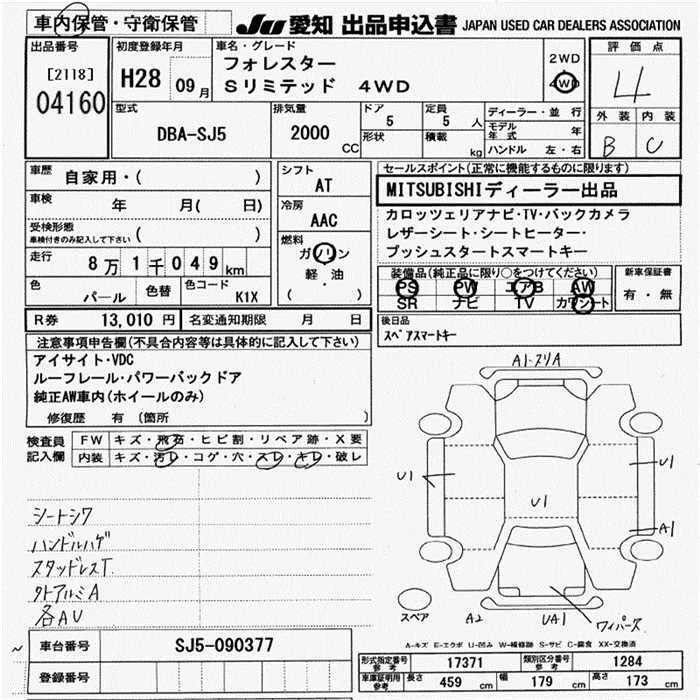 車内保管・守衛保管
JU 愛知 出品申込書 JAPAN USED CAR DEALERS ASSOCIATION
出品番号
[2118]
04160
初度登録年月
H28 09月
車名・グレード
フォレスター
Sリミテッド 4WD
2WD
4WD
評価点
4
外装 内装
B C
型式
DBA-SJ5
排気量
2000 CC
ドア
5
形状
定員
5 人
積載
kg
ディーラー・並行
モデル年式 年
ハンドル 左・右
車歴
自家用・( )
車検
年 月( 日)
受検形態
車検付きのみ記入して下さい ( )
走行
8万1千049km
色
パール
色替
色コード
K1X
シフト
AT
冷房
AAC
燃料
ガソリン
軽油
( ・ )
セールスポイント(正常に機能するものに限ります)
MITSUBISHIディーラー出品
カロッツェリアナビ・TV・バックカメラ
レザーシート・シートヒーター・
プッシュスタートスマートキー
装備品(純正品に限り○をつけてください)
PS PW エアB AW
SR ナビ TV カワシート
新車保証書
有・無
R券 13,010円
名変通知期限 月 日
後日品
スペアスマートキー
注意事項申告欄(不具合内容等は具体的に記入して下さい)
アイサイト・VDC
ルーフレール・パワーバックドア
純正AW車内(ホイールのみ)
修復歴 有 (箇所 )
検査員
記入欄
FW キズ・飛石・ヒビ割・リペア跡・X要
内装 キズ・汚レ・コゲ・穴・スレ・キレ・破レ
シートシワ
ハンドルハゲ
スタッドレスT
外アルミA
各AU
A1-スリA
U1
U1
U1
A1
スペア
A2
UA1
ワイパーズ
A-キズ E-エクボ U-凹み W-補修跡 S-サビ C-腐食 XX-交換済
車台番号
SJ5-090377
登録番号
形式指定番号
参考
17371
類別区分番号
参考
1284
車庫証明用
参考
長さ 459 cm
幅 179 cm
高さ 173 cm